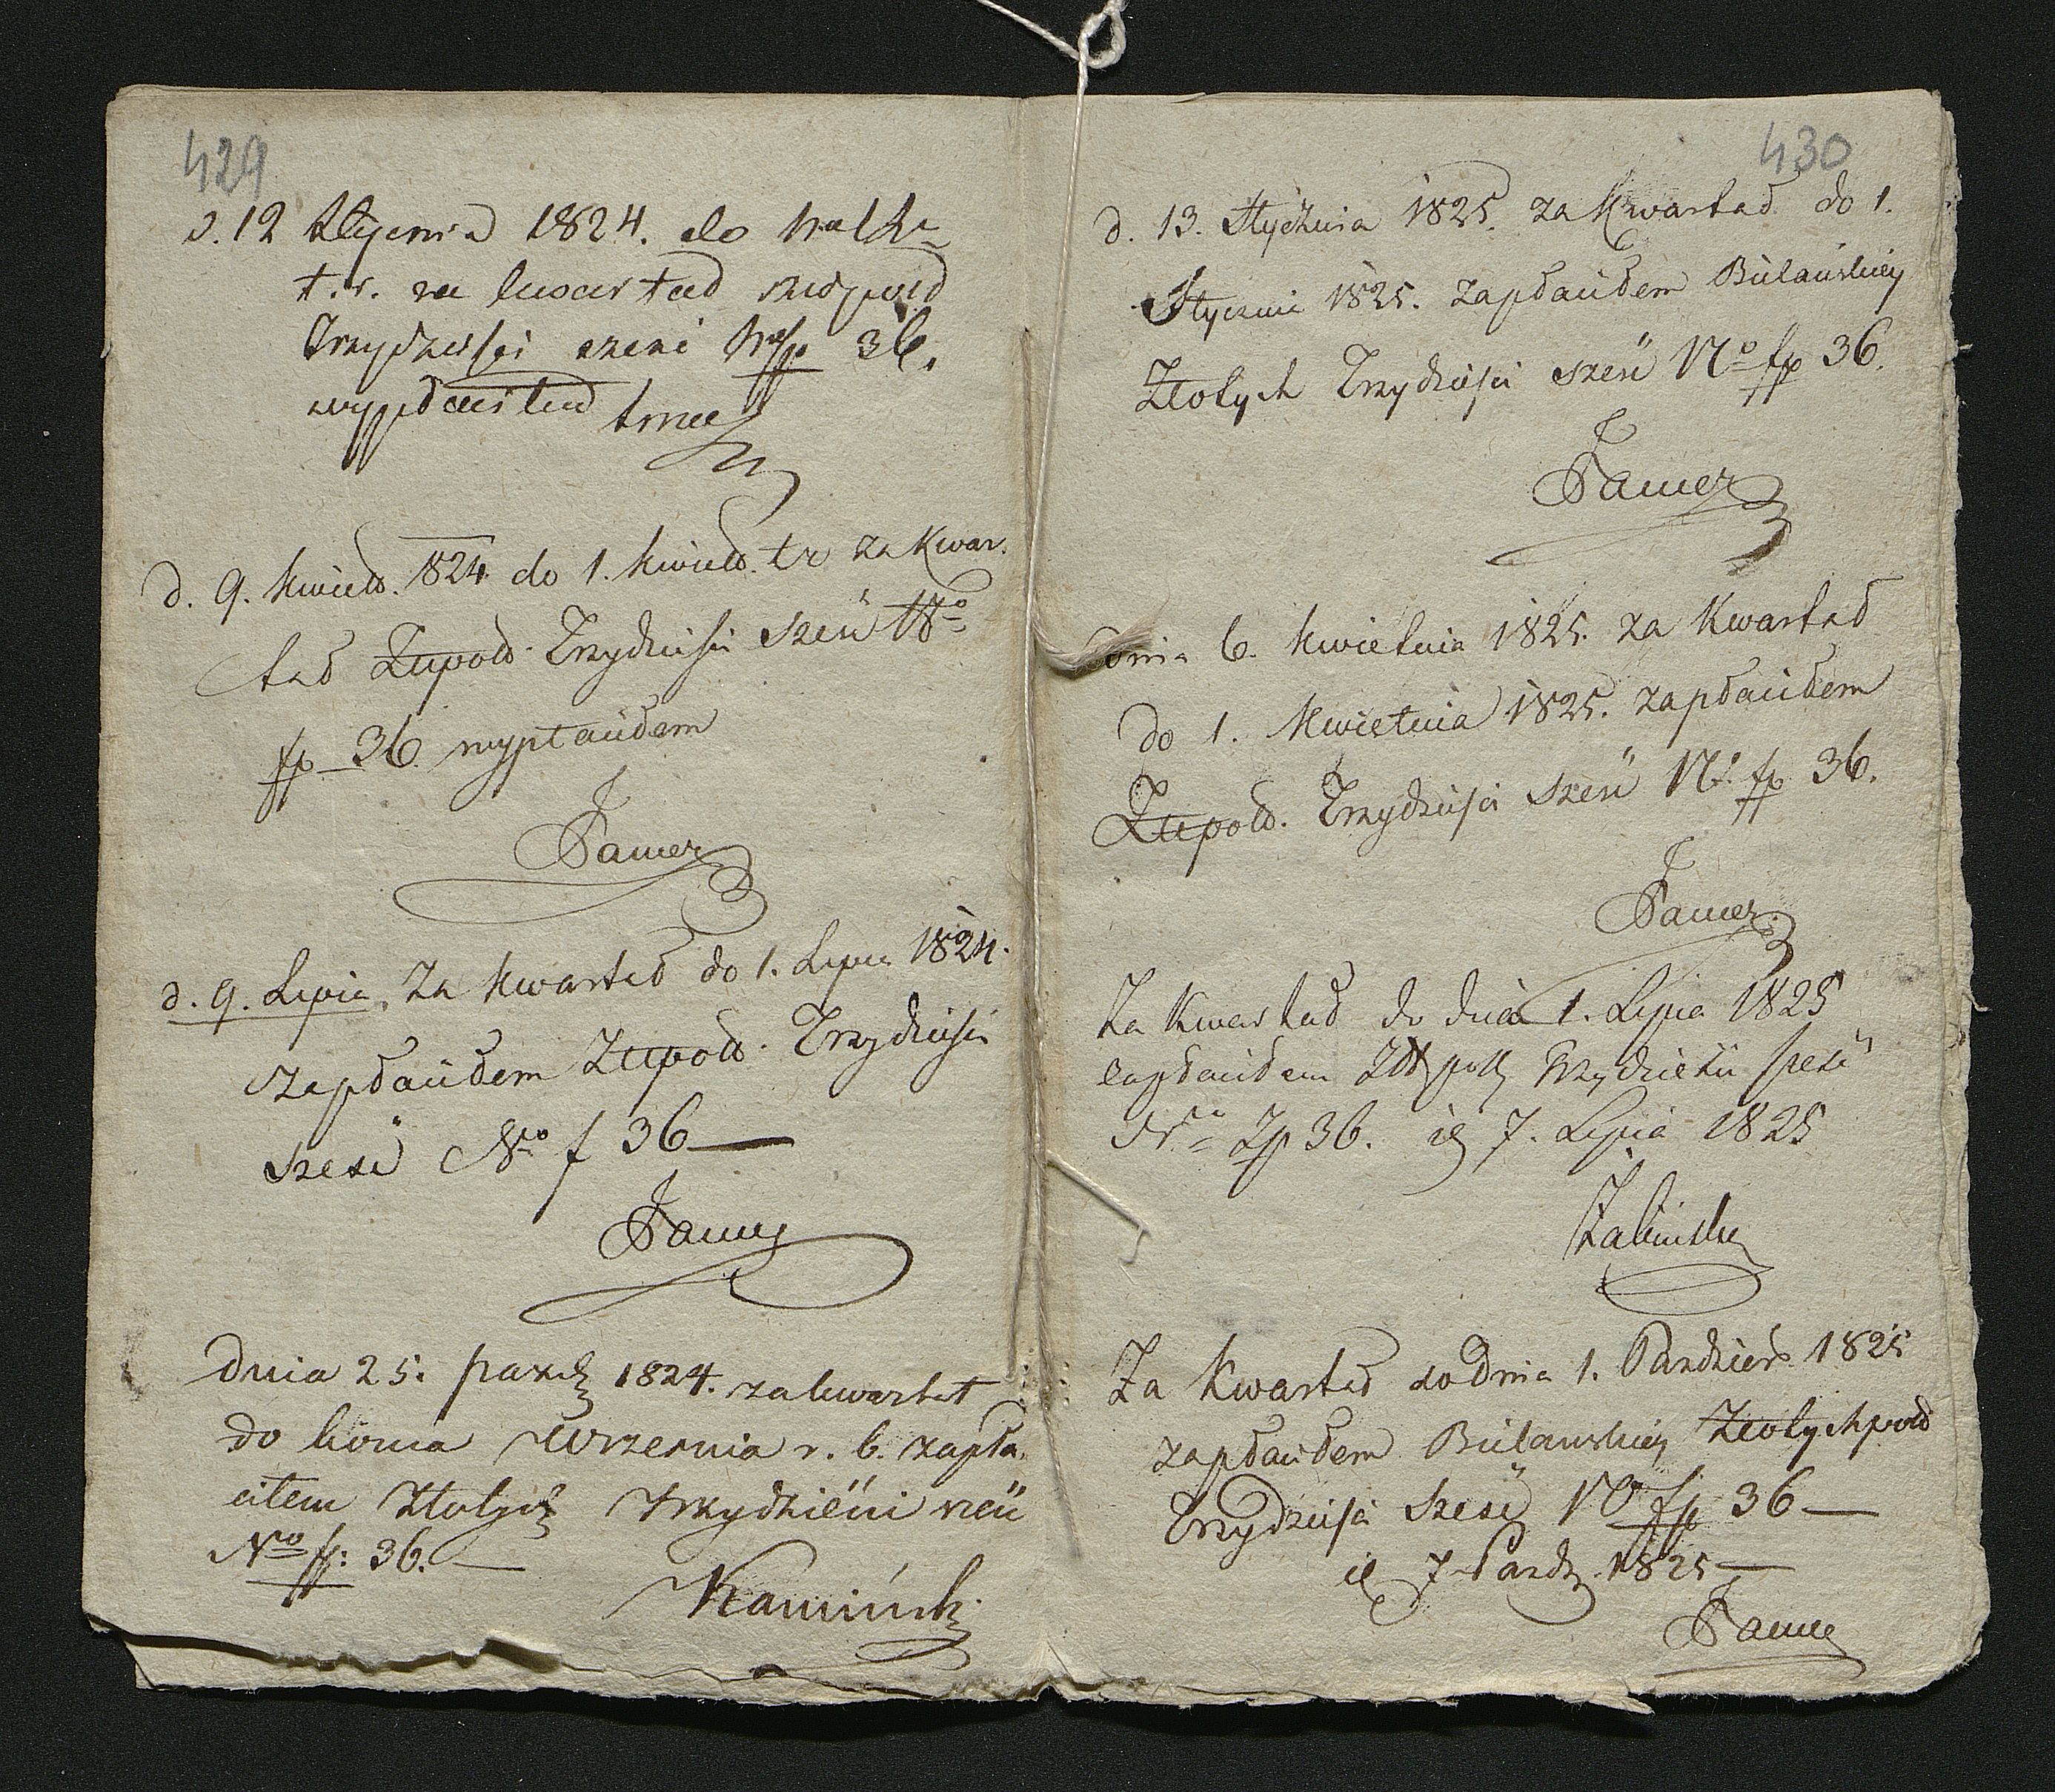 429
d. 12 Stycznia 1824. do
t. r. za kwartał złotpold
Trzydzieści sześć 36.
wypłacił
d. 9. kwietn. 1824. do 1. kwietn. tr za Kwar.
tał Złtpold. Trzydzieści sześć No
fp 36 wypłaciłem
d. 9. Lipca, Za Kwartał do 1. Lipca 1824.
zapłaciłem Złtpold. Trzydzieści
sześć No f 36 —
dnia 25. paźdz 1824. za kwartał
do końca Września r. b. zapła
ciłem Złotych trzydzieści sześć
No fp: 36. —
Kamiński
430
d. 13. Stycznia 1825. za Kwartał do 1.
Stycznia 1825. zapłaciłem Bułańskiey
Złotych Trzydzieści sześć No fp 36.
dnia 6. Kwietnia 1825. za Kwartał
do 1. Kwietnia 1825. zapłaciłem
Złtpold. Trzydzieści sześć No fp 36.
Za Kwartał do dnia 1. Lipca 1825
zapłaciłem Złt pol Trzydzieści szesć
Nro Zp 36. 7. Lipca 1825
Za Kwartał do Dnia 1. Paździer 1825
zapłaciłem Bułańskiey Złotychpold
Trzydzieści sześć No fp 36 —
7 Paźdz. 1825 —